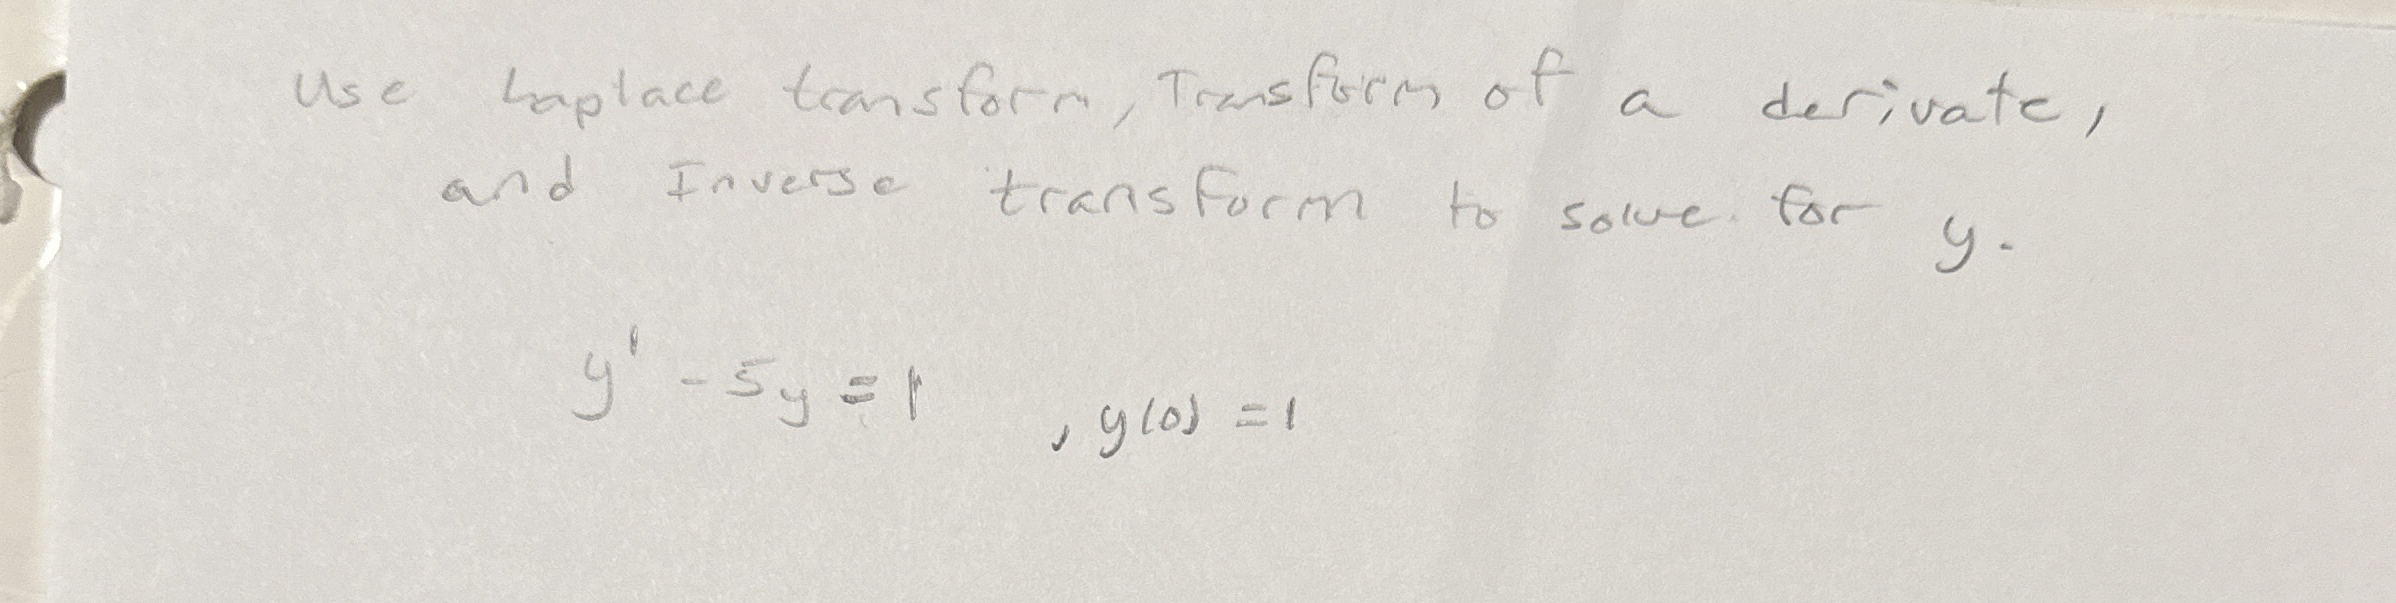 Use Laplace transform, Transform of a derivate,
and Inverse transform to solve for y.
y' - 5y = 1 , y(0) = 1